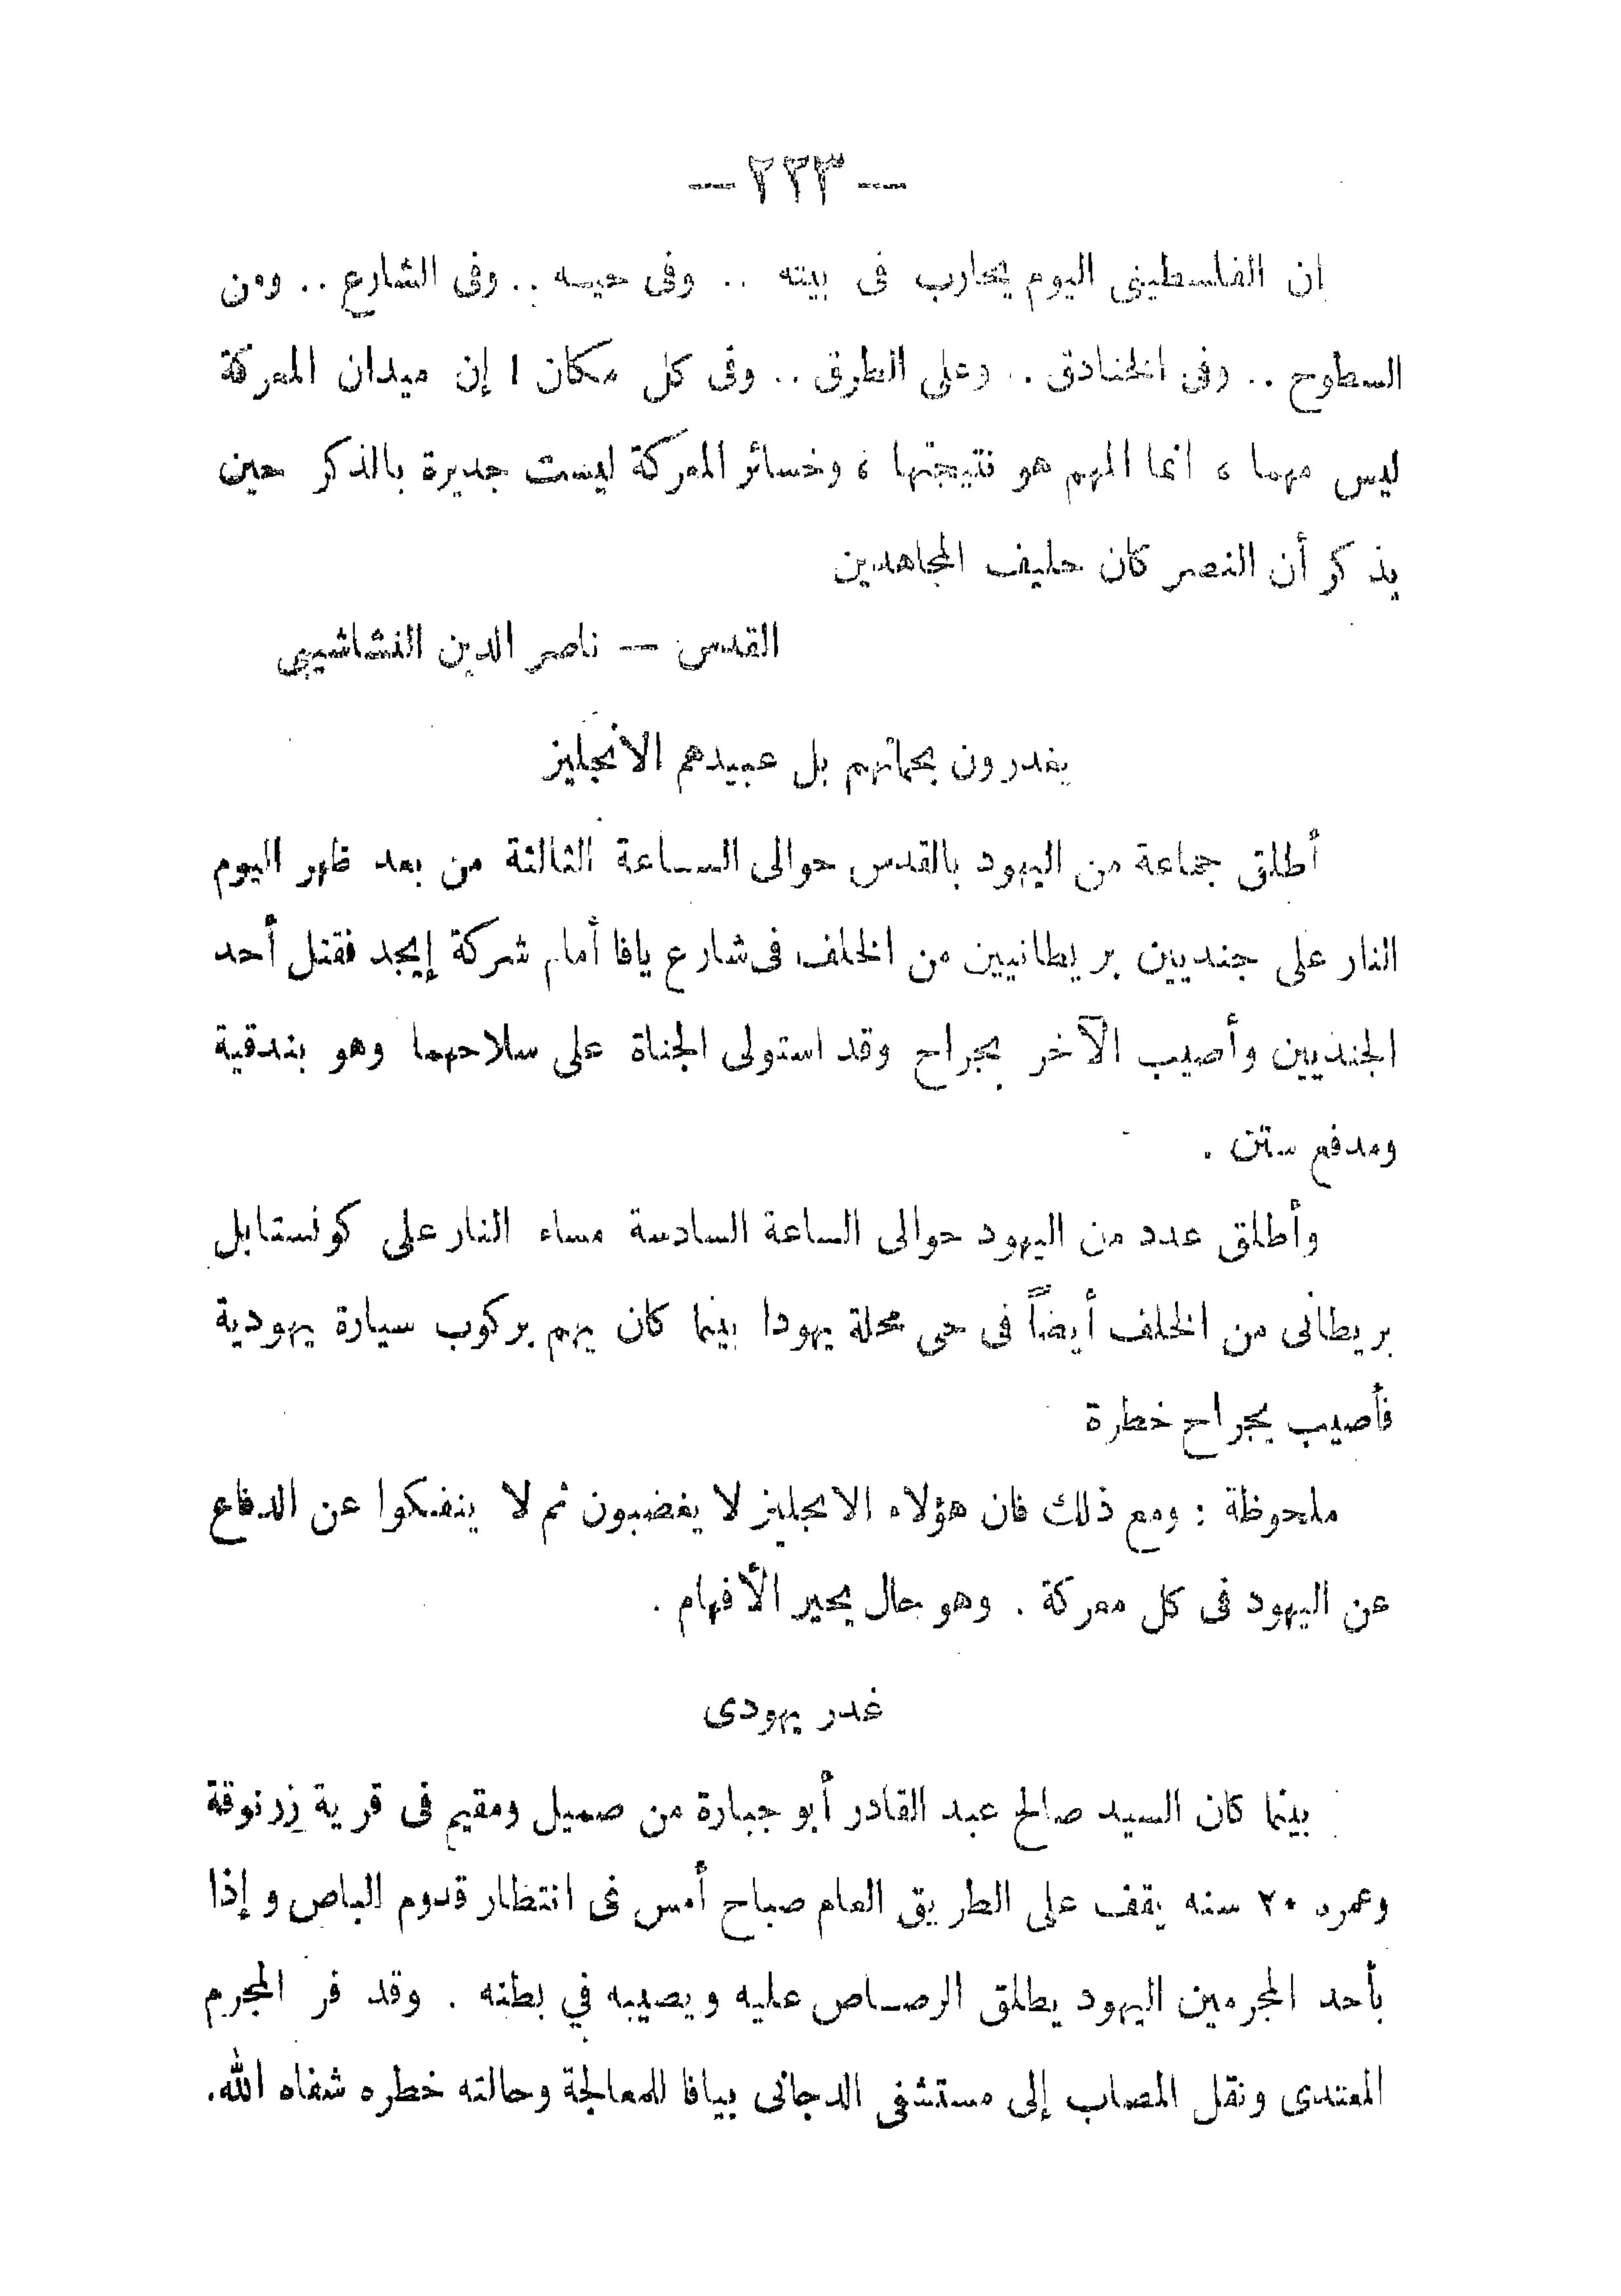 — ٢٣٣ —
ان الفلسطينى اليوم يحارب فى بيته .. وفى حيه .. وفى الشارع .. ومن
السطوح .. وفى الخنادق .. وعلى الطرق .. وفى كل مكان ! إن ميدان المعركة
ليس مهما ، انما المهم هو نتيجتها ، وخسائر المعركة ليست جديرة بالذكر حين
يذكر أن النصر كان حليف المجاهدين
القدس — ناصر الدين النشاشيبى
يغدرون بحماتهم بل عبيدهم الانجليز
أطلق جماعة من اليهود بالقدس حوالى الساعة الثالثة من بعد ظهر اليوم
النار على جنديين بريطانيين من الخلف فى شارع يافا أمام شركة إيجد فقتل أحد
الجنديين وأصيب الآخر بجراح وقد استولى الجناة على سلاحهما وهو بندقية
ومدفع ستن .
وأطلق عدد من اليهود حوالى الساعة السادسة مساء النار على كونستابل
بريطانى من الخلف أيضاً فى حى محلة يهودا بينما كان يهم بركوب سيارة يهودية
فأصيب بجراح خطرة
ملحوظة : ومع ذلك فان هؤلاء الانجليز لا يغضبون ثم لا ينفكوا عن الدفاع
عن اليهود فى كل معركة . وهو حال يحير الأفهام .
غدر يهودى
بينما كان السيد صالح عبد القادر أبو جبارة من صميل ومقيم فى قرية زرنوقة
وعمره ٢٠ سنه يقف على الطريق العام صباح أمس فى انتظار قدوم الباص وإذا
بأحد المجرمين اليهود يطلق الرصاص عليه ويصيبه في بطنه . وقد فر المجرم
المعتدى ونقل المصاب إلى مستشفى الدجانى بيافا للمعالجة وحالته خطره شفاه الله.